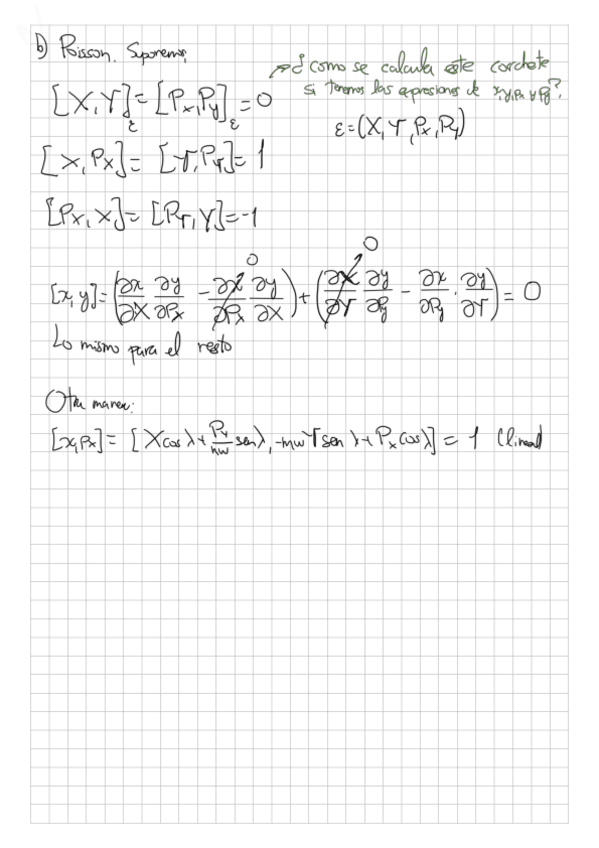 b) Poisson. Suponemos
→ ¿como se calcula este corchete
si tenemos las expresiones de x, y, Px y Py?
[X,Y]_ε = [Px,Py]_ε = 0
ε = (X, Y, Px, Py)
[X, Px] = [Y, PY] = 1
[Px, X] = [PY, Y] = -1
0 0
[x,y] = (∂x/∂X ∂y/∂Px - ∂x/∂Px ∂y/∂X) + (∂x/∂Y ∂y/∂Py - ∂x/∂Py · ∂y/∂Y) = 0
Lo mismo para el resto
Otra manera:
[x,px] = [X cos λ + PY/mw sen λ, -mwY sen λ + Px cos λ] = 1 (lineal